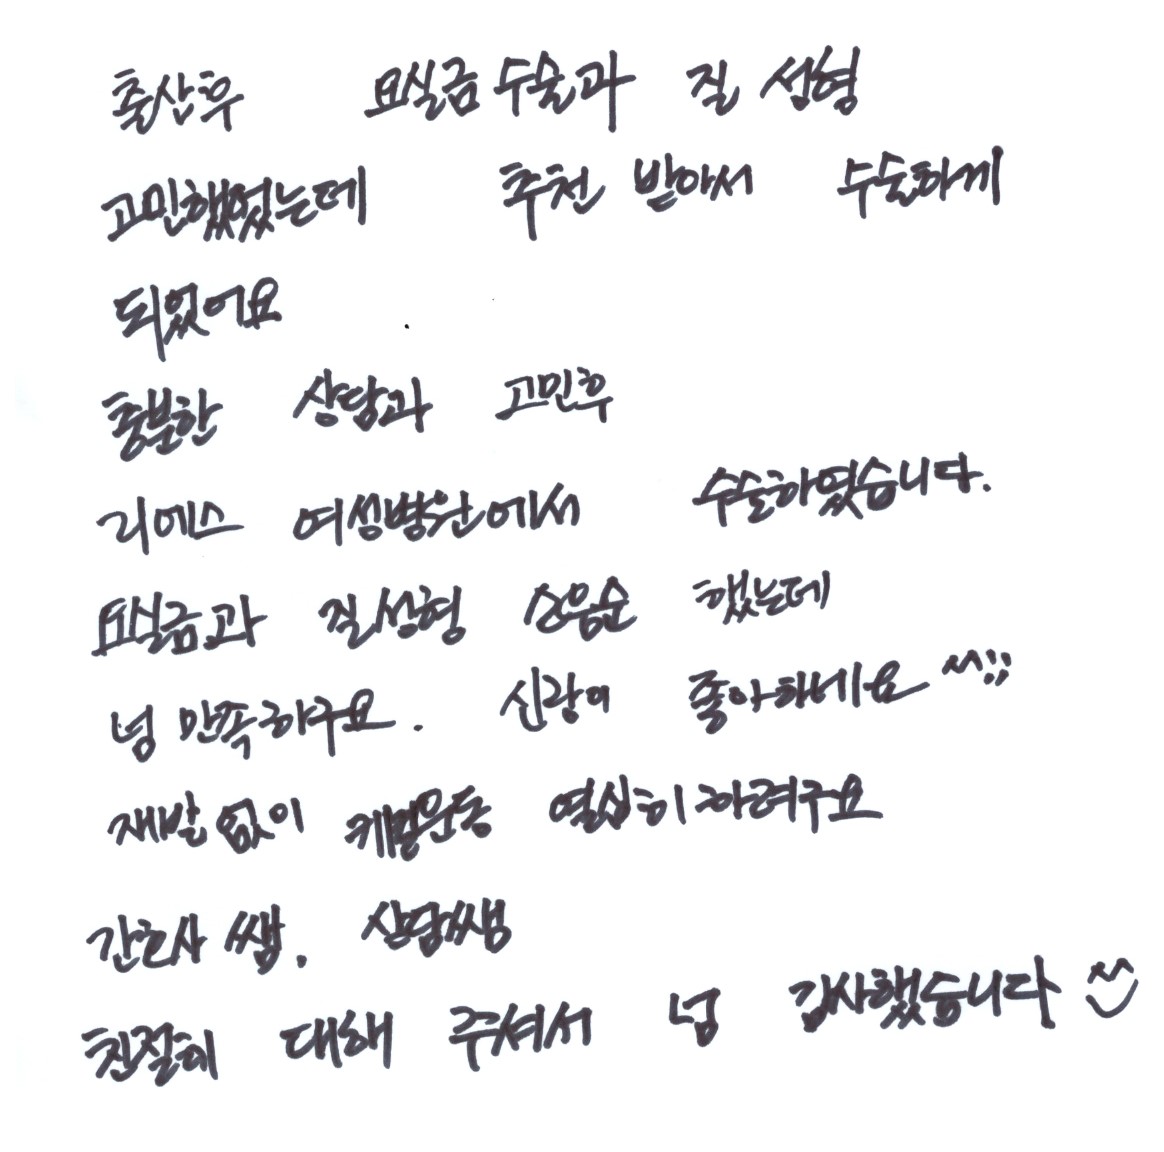 출산후 요실금 수술과 질 성형
고민했었는데 추천 받아서 수술하게
되었어요
충분한 상담과 고민후
리에스 여성병원에서 수술하였습니다.
요실금과 질성형 소음순 했는데
넘 만족하구요. 신랑이 좋아하네요 ^^;;
재발 없이 케겔운동 열심히 하려구요
간호사 쌤. 상담쌤
친절히 대해 주셔서 넘 감사했습니다 ^^